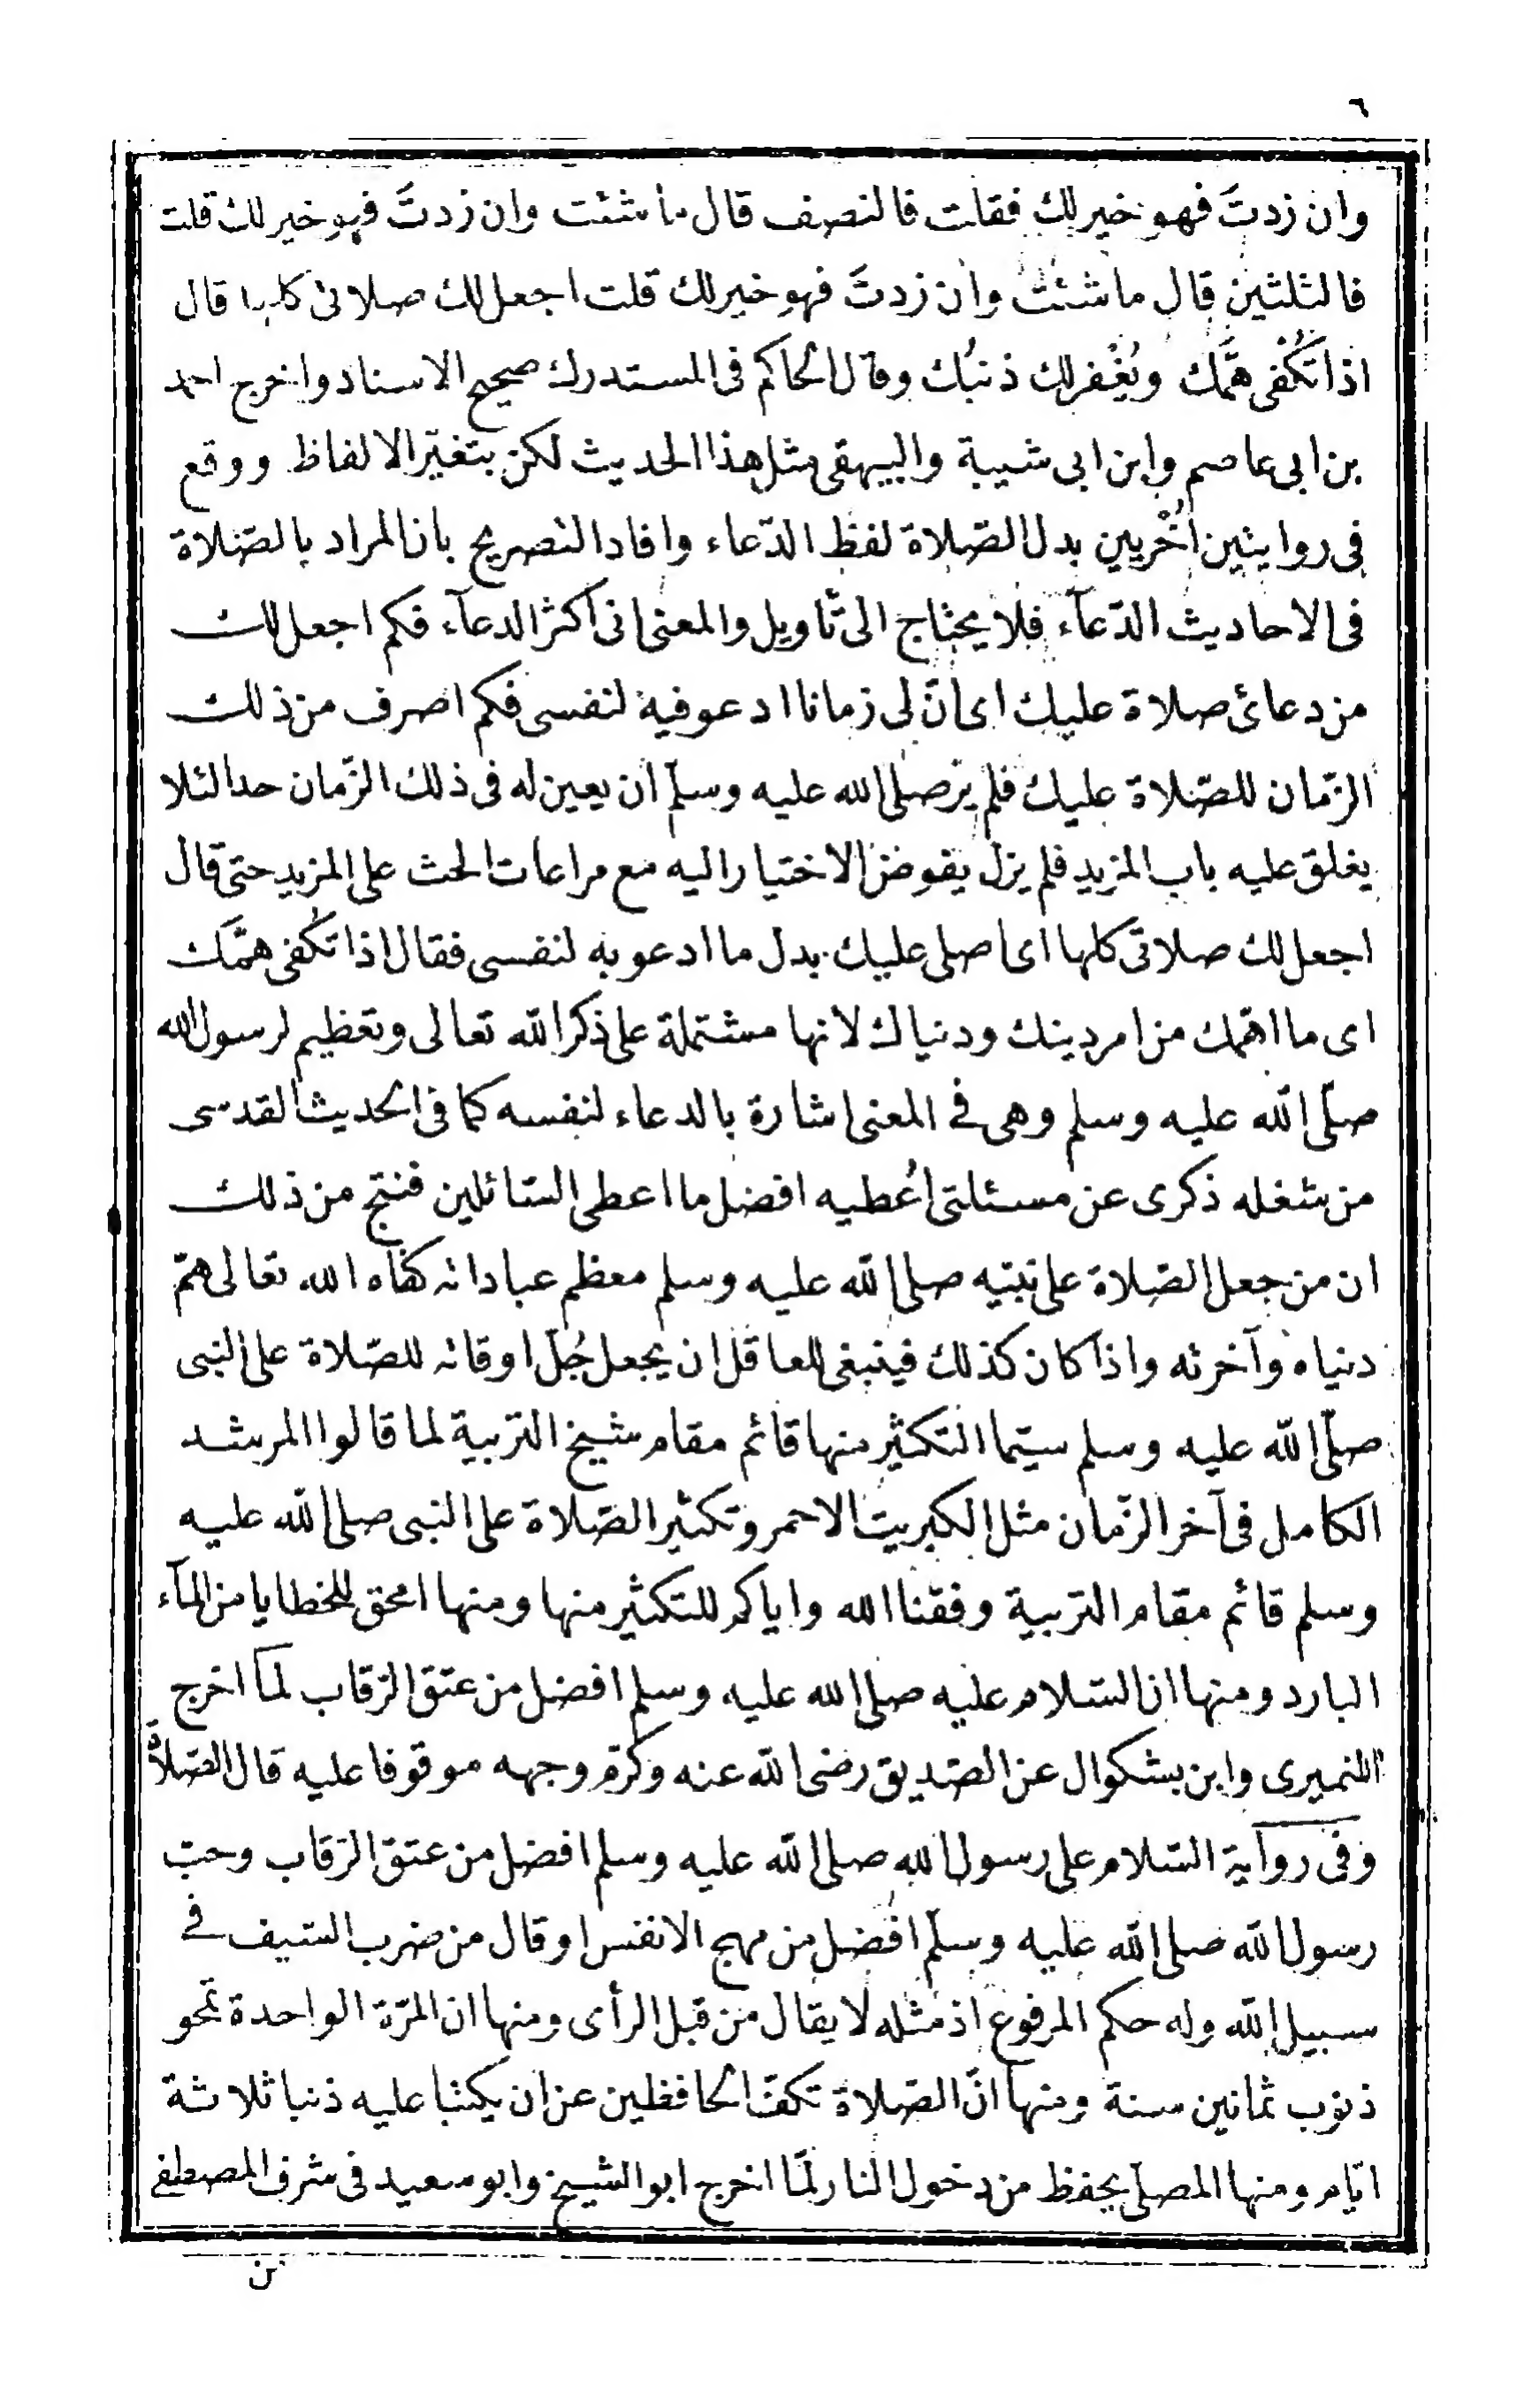 ٦
وان زدتَ فهو خير لك فقلت فالنصف قال ما شئت وان زدتَ فهو خير لك قلت
فالثلثين قال ما شئت وان زدتَ فهو خير لك قلت اجعل لك صلاتى كلها قال
اذا تُكْفى همَّك ويُغْفر لك ذنبُك وقال الحاكم فى المستدرك صحيح الاسناد واخرج احمد
بن ابى عاصم وابن ابى شيبة والبيهقى مثل هذا الحديث لكن بتغيّر الالفاظ ووقع
فى روايتين اُخْريين بدل الصّلاة لفظ الدّعاء وافاد التصريح بان المراد بالصّلاة
فى الاحاديث الدّعآء فلا يحتاج الى تأويل والمعنى انى اكثر الدعآء فكم اجعل لك
من دعائى صلاة عليك اى انّ لى زمانا ادعو فيه لنفسى فكم اصرف من ذلك
الزّمان للصّلاة عليك فلم يَر صلى الله عليه وسلّم ان يعين له فى ذلك الزّمان حدا لئلا
يغلق عليه باب المزيد فلم يزل يفوض الاختيار اليه مع مراعات الحث على المزيد حتى قال
اجعل لك صلاتى كلها اى اصلى عليك بدل ما ادعو به لنفسى فقال اذا تُكفى همَّك
اى ما اهمّك من امر دينك ودنياك لانها مشتملة على ذكر الله تعالى وتعظيم لرسول الله
صلّى الله عليه وسلم وهى فى المعنى اشارة بالدعاء لنفسه كما فى الحديث القدسى
من شغله ذكرى عن مسئلتى اُعطيه افضل ما اعطى السّائلين فنتج من ذلك
ان من جعل الصّلاة على نبيّه صلى الله عليه وسلم معظم عباداته كفاه الله تعالى همّ
دنياه وآخرته واذا كان كذلك فينبغى للعاقل ان يجعل جُلّ اوقاته للصّلاة على النبى
صلّى الله عليه وسلم سيّما التكثير منها قائم مقام شيخ التربية لما قالوا المرشد
الكامل فى آخر الزّمان مثل الكبريت الاحمر وتكثير الصّلاة على النبى صلى الله عليه
وسلم قائم مقام التربية وفقنا الله واياكم للتكثير منها ومنها امحق للخطايا من المآء
البارد ومنها ان السّلام عليه صلى الله عليه وسلم افضل من عتق الرّقاب لما اخرج
النميرى وابن بشكوال عن الصّديق رضى الله عنه وكرّم وجهه موقوفا عليه قال الصّلاة
وفى رواية السّلام على رسول الله صلى الله عليه وسلم افضل من عتق الرّقاب وحبّ
رسول الله صلى الله عليه وسلّم افضل من مهج الانفس او قال من ضرب السّيف فى
سبيل الله وله حكم المرفوع اذ مثله لا يقال من قبل الرأى ومنها ان المرّة الواحدة تمحو
ذنوب ثمانين سنة ومنها انّ الصّلاة تكفّ الحافظين عن ان يكتبا عليه ذنبا ثلاثة
ايّام ومنها المصلّى يحفظ من دخول النار لمّا اخرج ابو الشيخ وابو سعيد فى شرف المصطفى